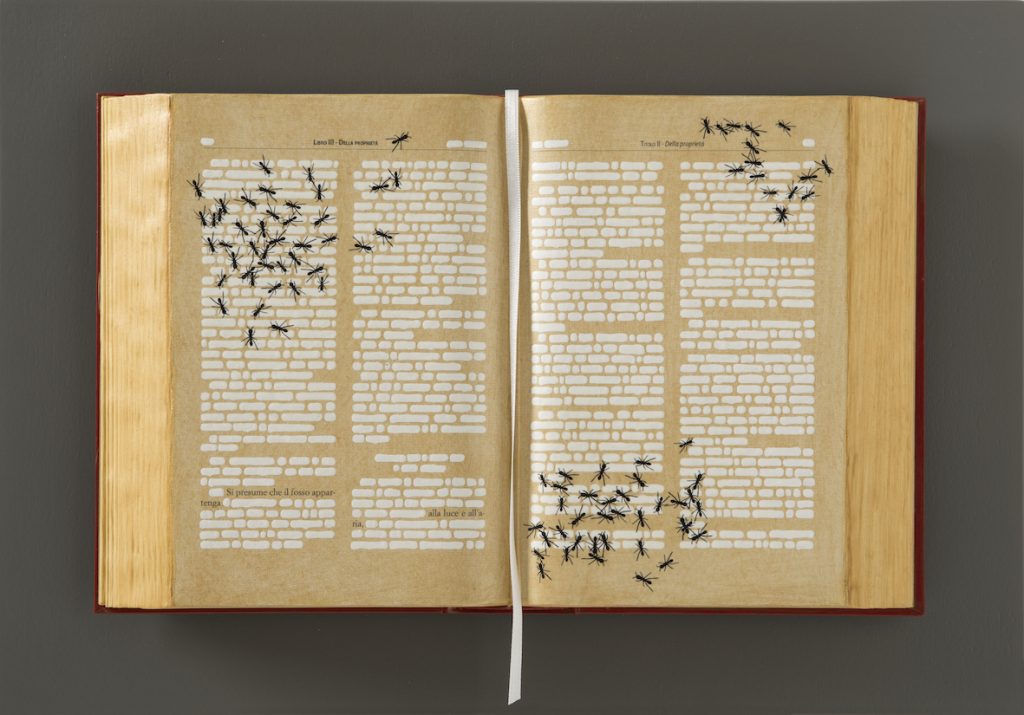 Libro III - Della proprietà
Si presume che il fosso appar-
tenga
alla luce e all'a-
ria,
Titolo II - Della proprietà